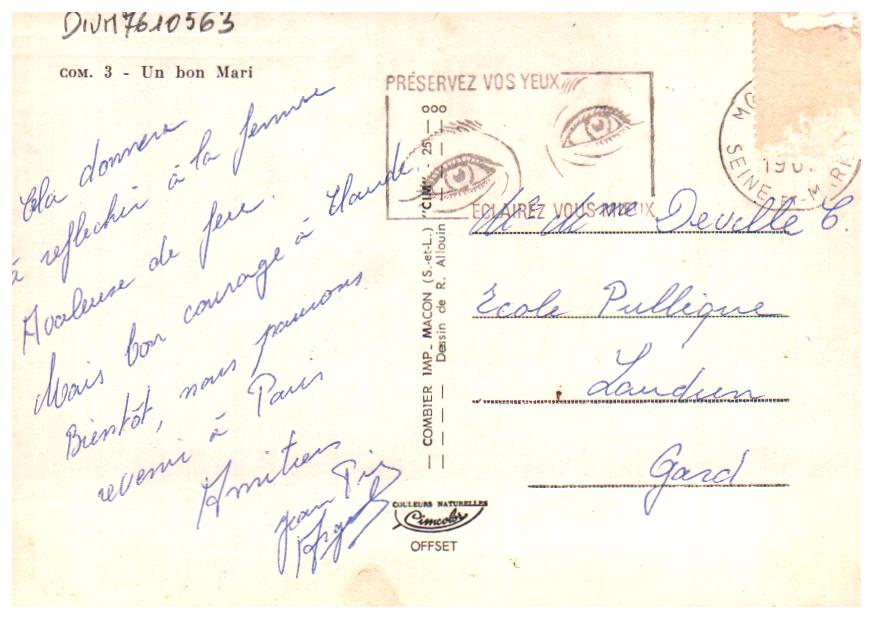 DIVM7610563
COM. 3 - Un bon Mari
Cela donnera
à reflechir à la femme
Avaleuse de feu.
Mais bon courage à Claude.
Bientôt, nous pourrons
revenir à Paris
Amitiés
Jean
PRÉSERVEZ VOS YEUX
ECLAIREZ VOUS MIEUX
SEINE-ET-MARNE
COMBIER IMP. MACON (S.-et-L.) "CIM" - 25 - 000
Dessin de R. Allouin
COULEURS NATURELLES
Cimcolor
OFFSET
M. Mme Deville C.
Ecole Publique
Laudun
Gard